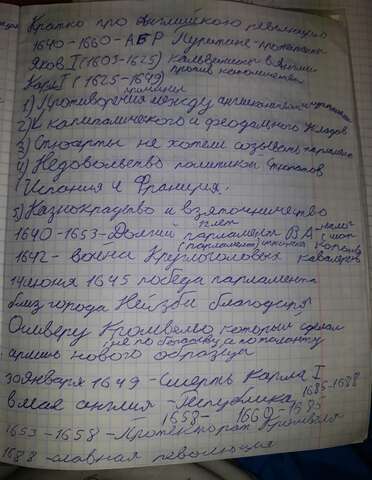 Кратко про Английскую революцию
1640-1660-АБР Пуритане-протестанты
Яков I (1603-1625) Кальвинизм в Англии
против католичества
Карл I (1625-1649)
причины
1) Противоречия между англиканами и пуританами
2) К капиталического и феодального укладов
3) Стюарты не хотели созывать парламент
4) Недовольство политикой Стюартов
Испания и Франция.
5) Казнокрадство и взяточничество
12 лет
1640-1653-Долгий парламент ВА-
(парламент) против короля
1642- война Круглоголовых кавалеров
14 июня 1645 победа парламента
близ города Нейзби благодаря
Оливеру Кромвелю который сделал
не по богатству, а по таланту
армию нового образца
30 января 1649 -Смерть Карла I
1685-1688
в мае англия -республика
1658- 1660-1685
1653-1658-Протекторат Кромвеля
1688-славная революция